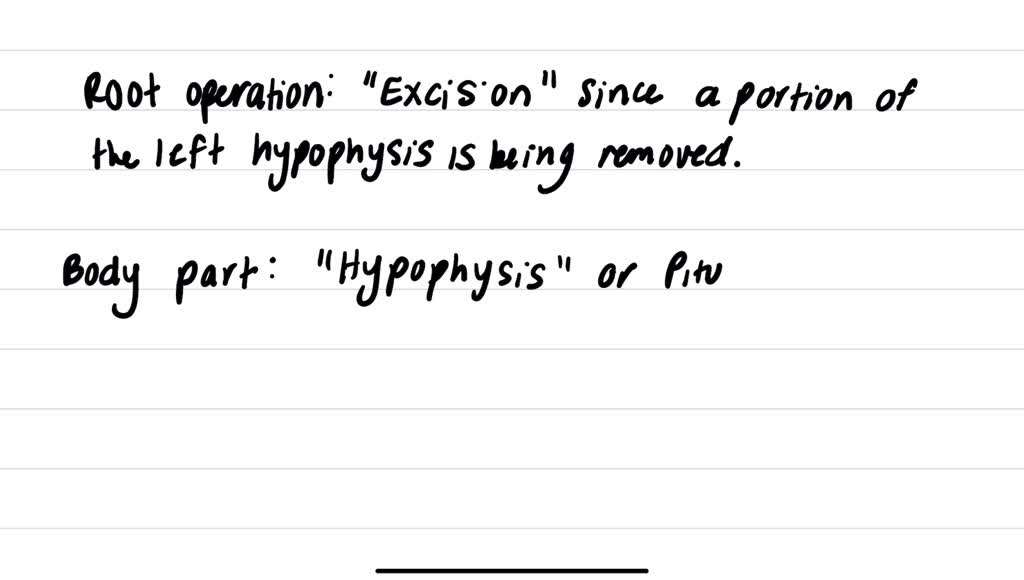 Root operation: "Excision" since a portion of
the left hypophysis is being removed.
Body part: "Hypophysis" or Pitu